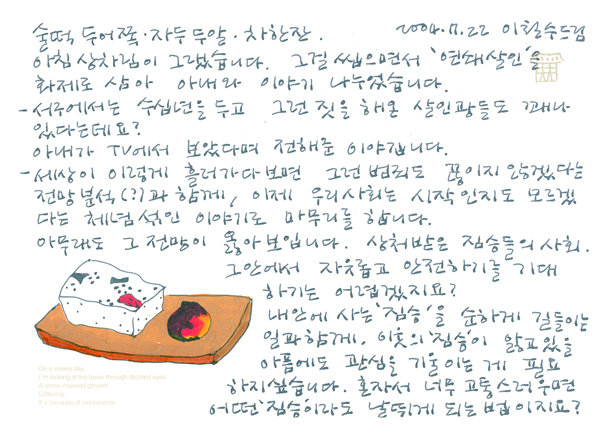 술떡 두어쪽·자두 두알·차한잔. 2004.7.22 이철수드림
아침 상차림이 그랬습니다. 그걸 씹으면서 '연쇄살인'을
화제로 삼아 아내와 이야기 나누었습니다.
-서구에서는 수십년을 두고 그런 짓을 해온 살인광들도 꽤나
있다는데요?
아내가 TV에서 보았다며 전해준 이야깁니다.
-세상이 이렇게 흘러가다보면 그런 범죄도 끊이지 않겠다는
전망분석(?)과 함께, 이제 우리사회는 시작인지도 모르겠
다는 체념섞인 이야기로 마무리를 합니다.
아무래도 그 전망이 옳아보입니다. 상처받은 짐승들의 사회.
그안에서 자유롭고 안전하기를 기대
하기는 어렵겠지요?
내안에 사는 '짐승'을 순하게 길들이는
일과 함께, 이웃의 '짐승'이 앓고있을
아픔에도 관심을 기울이는 게 필요
하지싶습니다. 혼자서 너무 고통스러우면
어떤 '짐승'이라도 날뛰게 되는 법이지요?
On a snowy day,
I'm looking at the tower through dazzled eyes.
A snow-covered ground.
Glittering.
It's because of monuments.